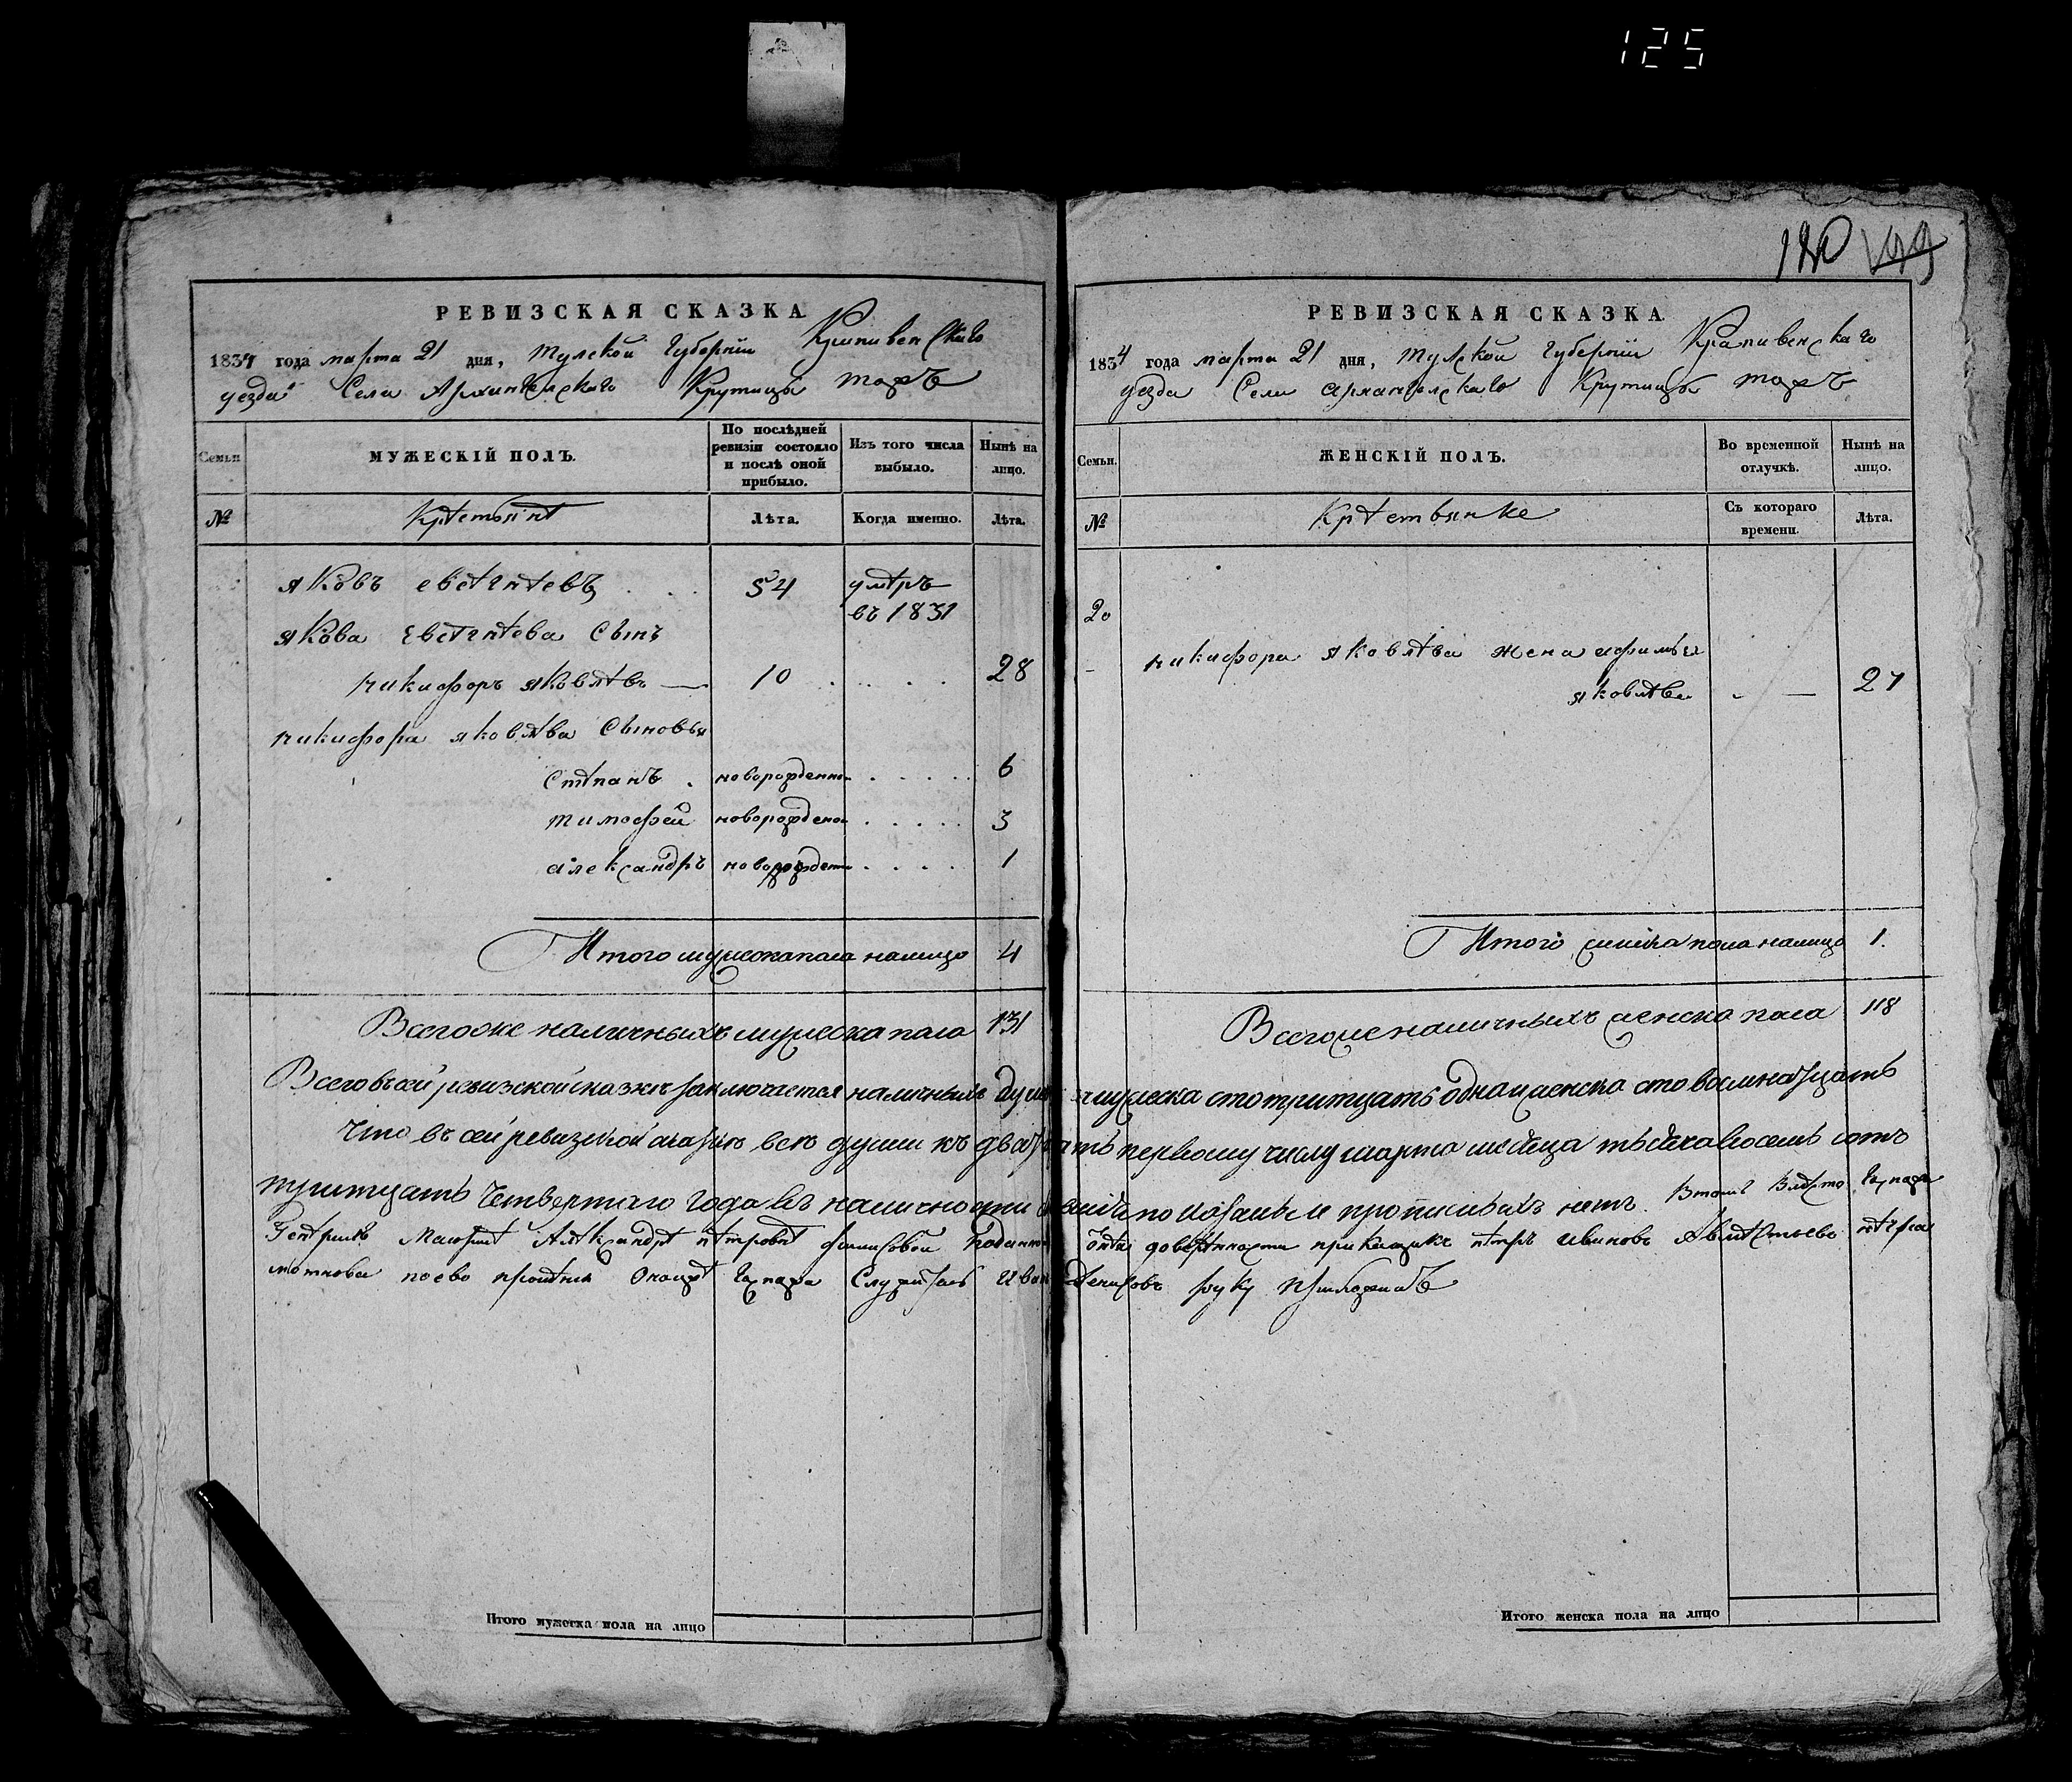 125
120 119
РЕВИЗСКАЯ СКАЗКА.
1834 года марта 21 дня, тулской губернии Крапивенскаго
уезда Села Архангелскаго Крутицы тожъ
Семьи
МУЖЕСКІЙ ПОЛЪ.
По послѣдней ревизіи состояло и послѣ оной прибыло.
Изъ того числа выбыло.
Нынѣ на лицо.
№
Крестьяне
Лѣта.
Когда именно.
Лѣта.
яковъ евсегнеевъ 54 умеръ
въ 1831
якова Евсегнеева Сынъ
никифоръ яковлевъ — 10 28
никифора яковлева Сыновья
Степанъ новорожденно 6
тимофей новорожденои 3
александръ новорожден 1
Итого мужескапола налицо 4
Всегоже наличныхъ мужеска пола 131
РЕВИЗСКАЯ СКАЗКА.
1834 года марта 21 дня, тулской губернии Крапивенскаго
уезда Села архангелскаго Крутицы тожъ
Семьи.
ЖЕНСКІЙ ПОЛЪ.
Во временной отлучкѣ.
Нынѣ на лицо.
№
Крестьянке
Съ котораго времени.
Лѣта.
20
никифора яковлева жена афимья
яковлева — 27
Итого женска пола налицо 1.
Всегоже наличныхъ женска пола 118
Всего въ сей ревизской сказкѣ заключается наличныхъ душъ мужеска сто тритцать одна женска сто восемнатцать
Что въ сей ревизской сказке все души къ двадцать первому числу марта месяца тысяча восемь сотъ
тритцать четвертаго года въ наличности и прописныхъ нетъ. Втомъ Вместо Гаспажи
Маіорше Александре петровне доверенности прикащикъ петръ ивановъ
поево прошению Гаспажи Служитель Иванъ Денисовъ руку Приложилъ
Итого мужеска пола на лицо
Итого женска пола на лицо